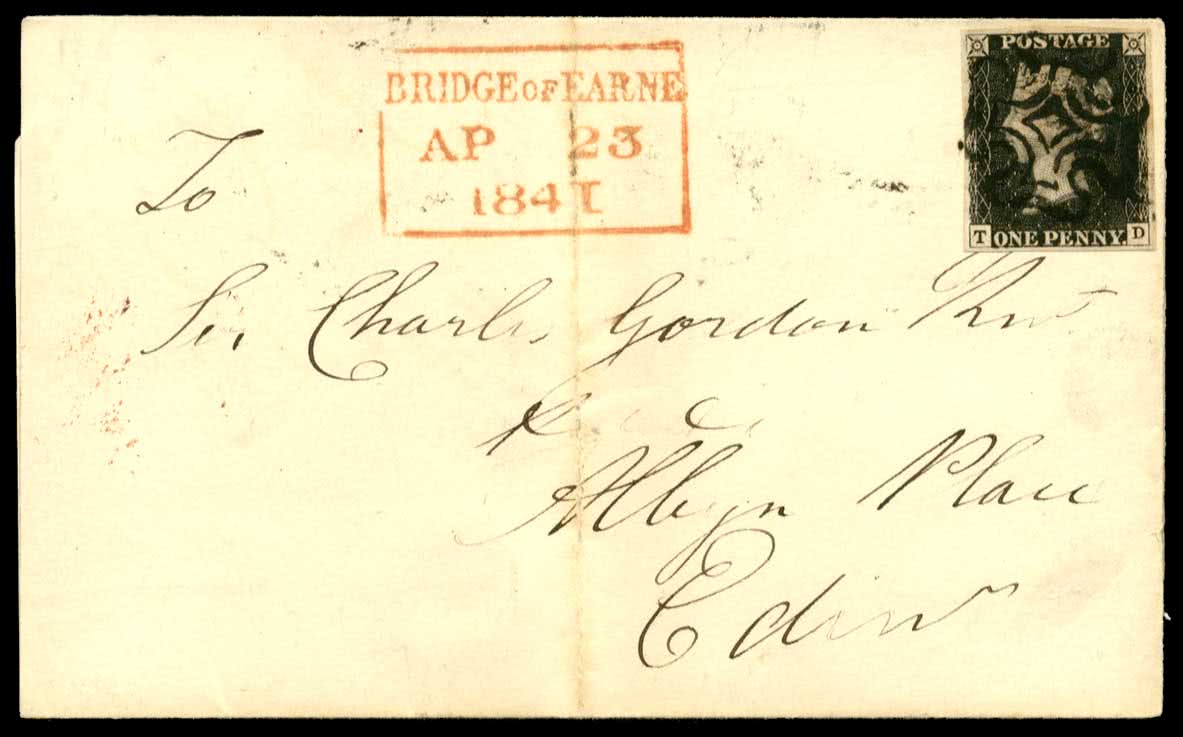 POSTAGE
T ONE PENNY. D
BRIDGE OF EARNE
AP 23
1841
To
Sir Charles Gordon
Albyn Place
Edinr